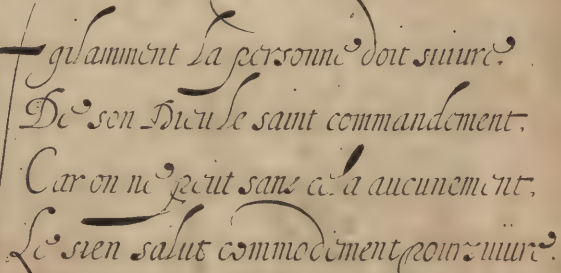 gilamment la personne doit suiure.
De son Dieu le saint commandement.
Car on ne peut sans cela aucunement.
Le sien salut commodement poursuiure.